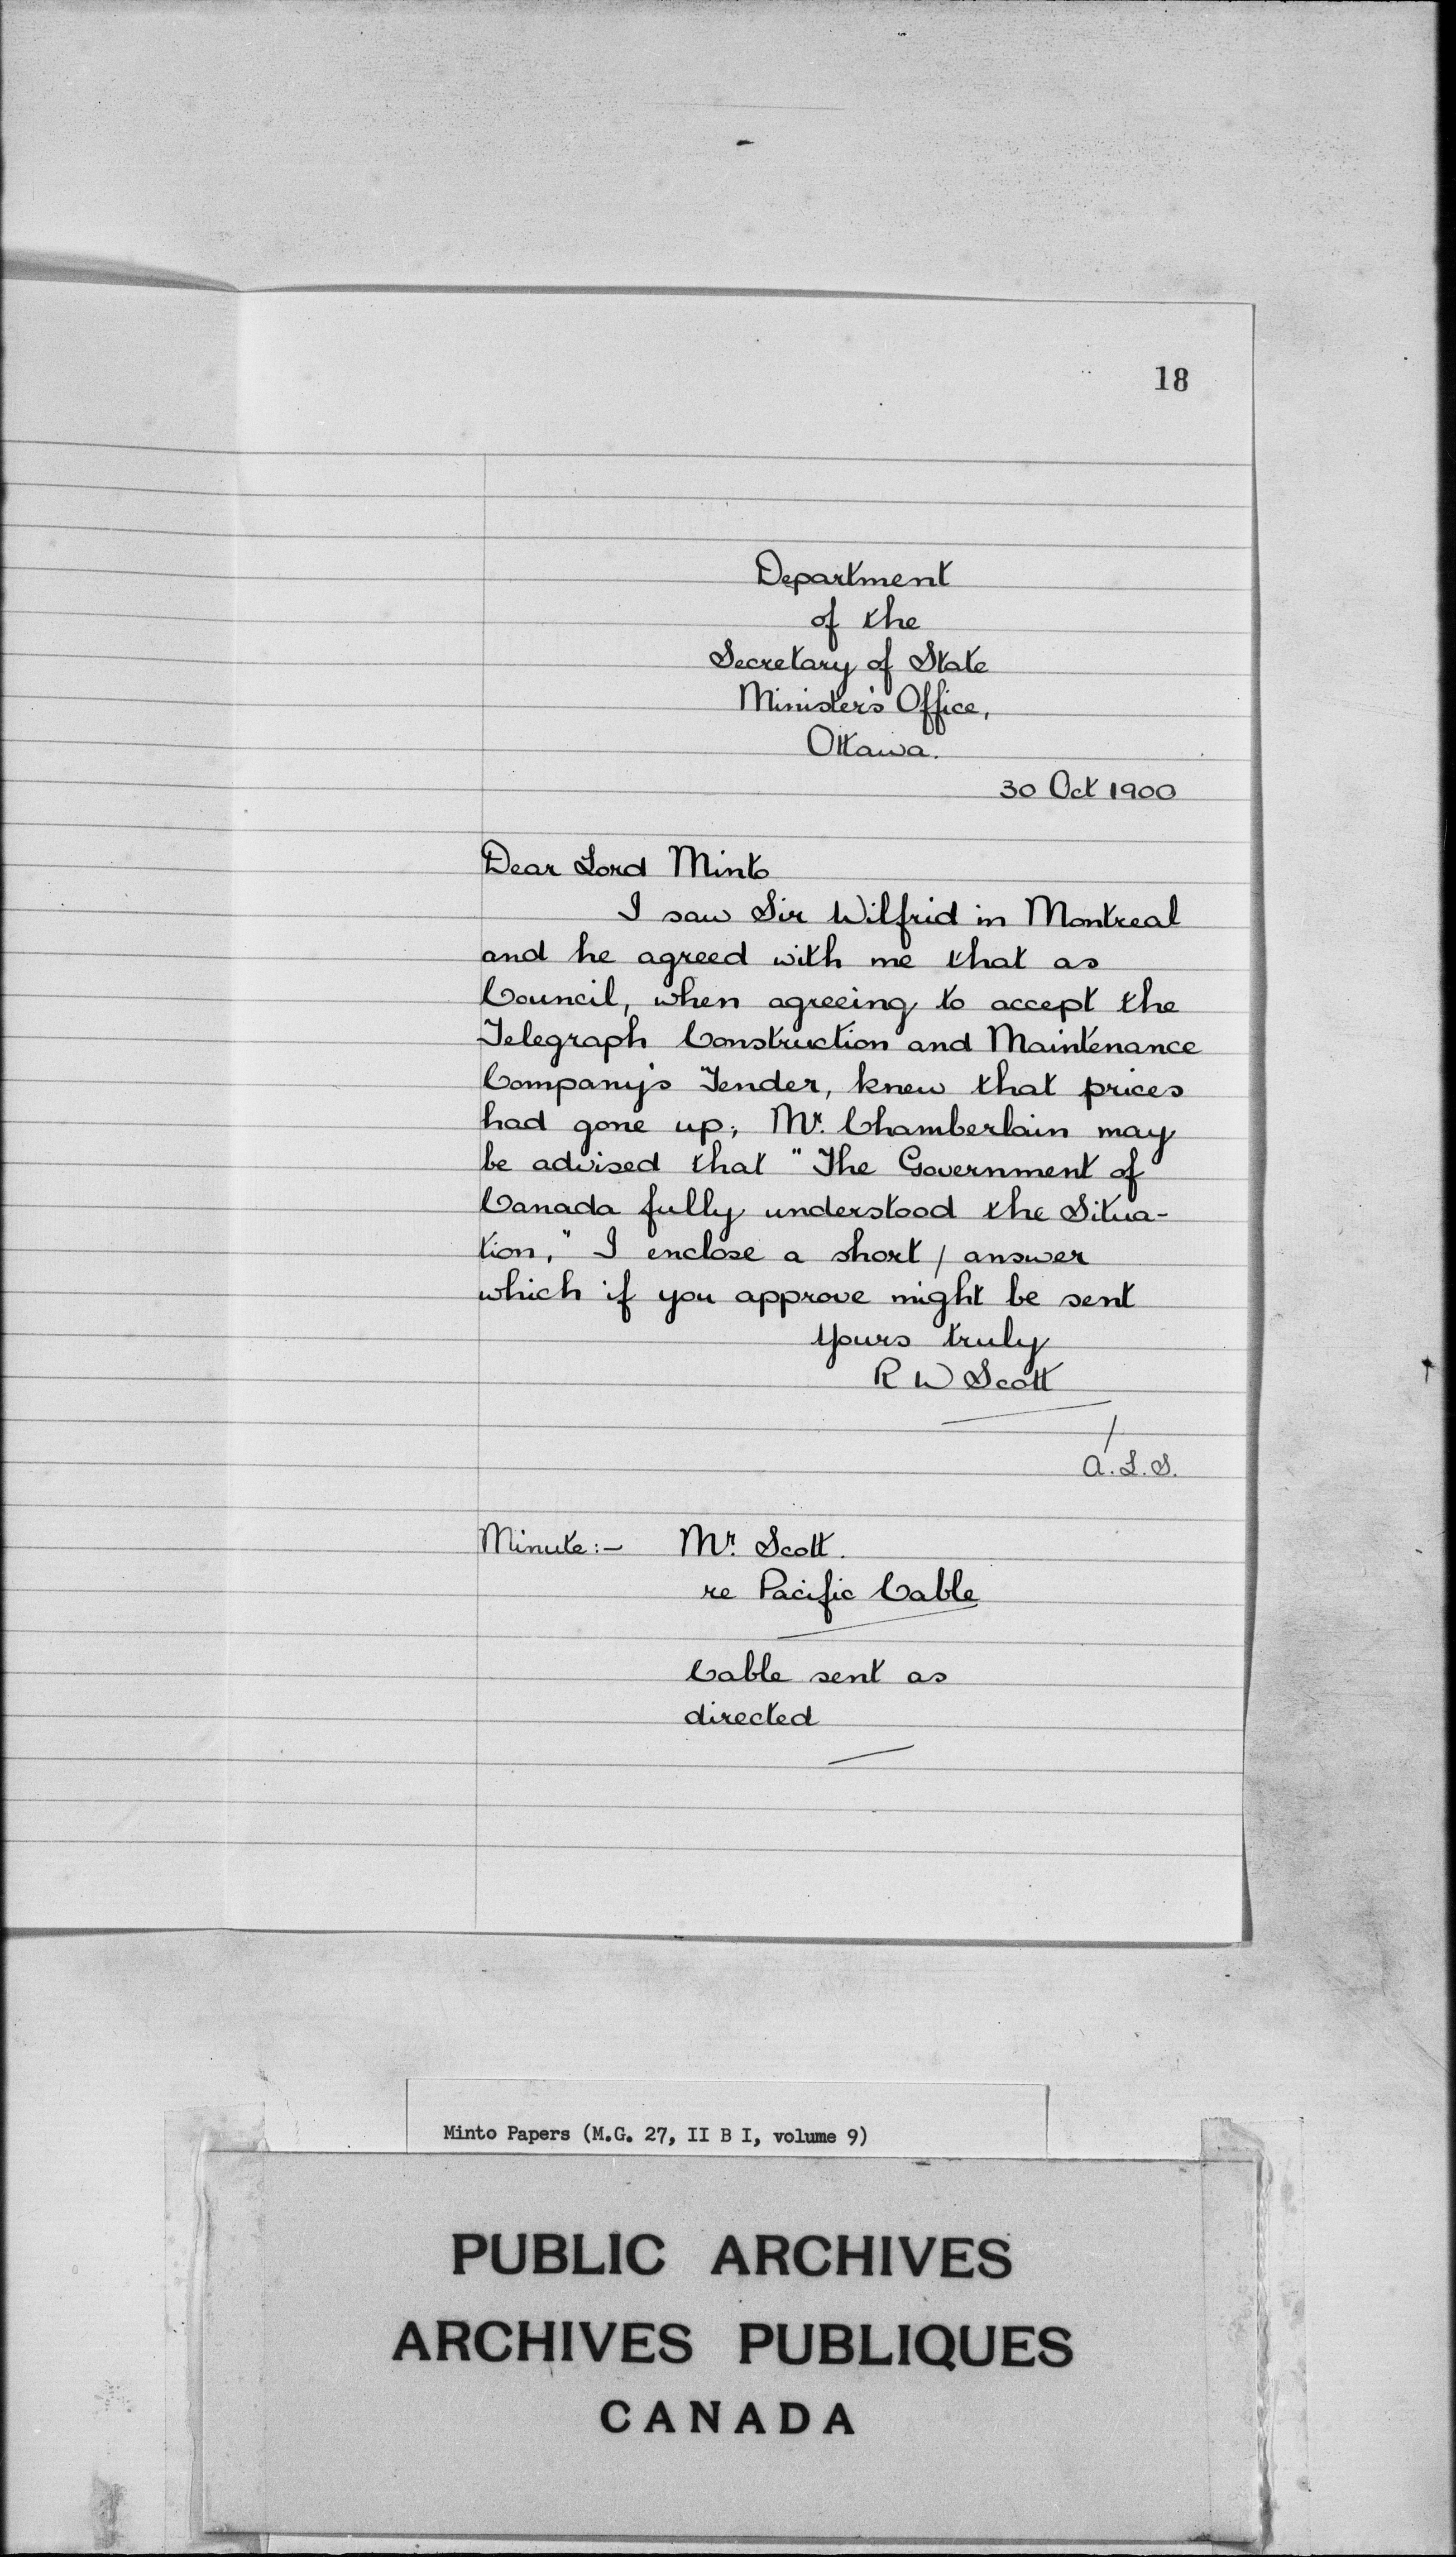 18
Department
of the
Secretary of State
Minister's Office,
Ottawa.
30 Oct 1900
Dear Lord Minto
I saw Sir Wilfrid in Montreal
and he agreed with me that as
Council, when agreeing to accept the
Telegraph Construction and Maintenance
Company's Tender, knew that prices
had gone up; Mr. Chamberlain may
be advised that "The Government of
Canada fully understood the Situa-
tion," I enclose a short / answer
which if you approve might be sent
Yours truly
R W Scott
/
A.L.S.
Minute:- Mr. Scott.
re Pacific Cable
Cable sent as
directed
Minto Papers (M.G. 27, II B I, volume 9)
PUBLIC ARCHIVES
ARCHIVES PUBLIQUES
CANADA